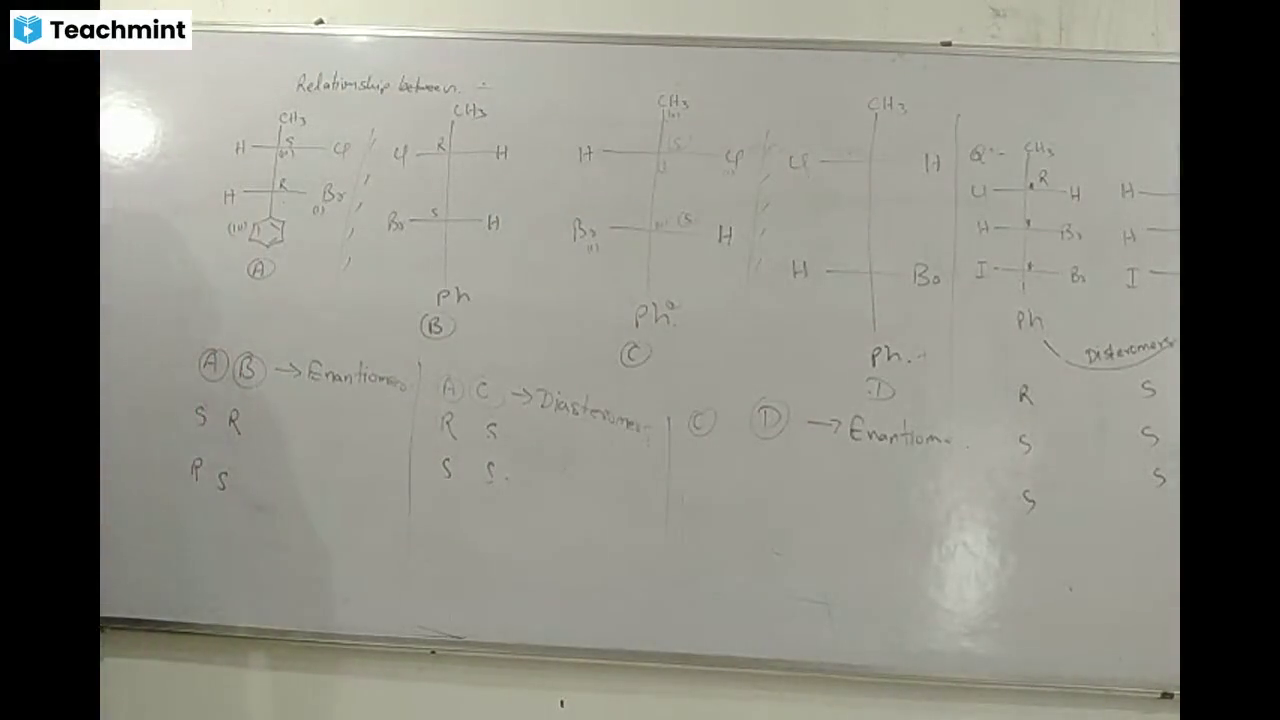 Teachmint
Relationship between :-
CH3
H S Cl
(II)
H R Br
(I)
(III)
A
CH3
Cl R H
Br S H
Ph
B
CH3
(III)
H (S) Cl
(I)
Br (S) H
(I)
Ph
C
CH3
Cl H
H Br
Ph
D
Q:- CH3
Cl R H
H Br
I Br
Ph
H
H
I
Disteromers
A B → Enantiomers
S R
R S
A C → Diasteromers
R S
S S.
C D → Enantiom
R S
S S
S S